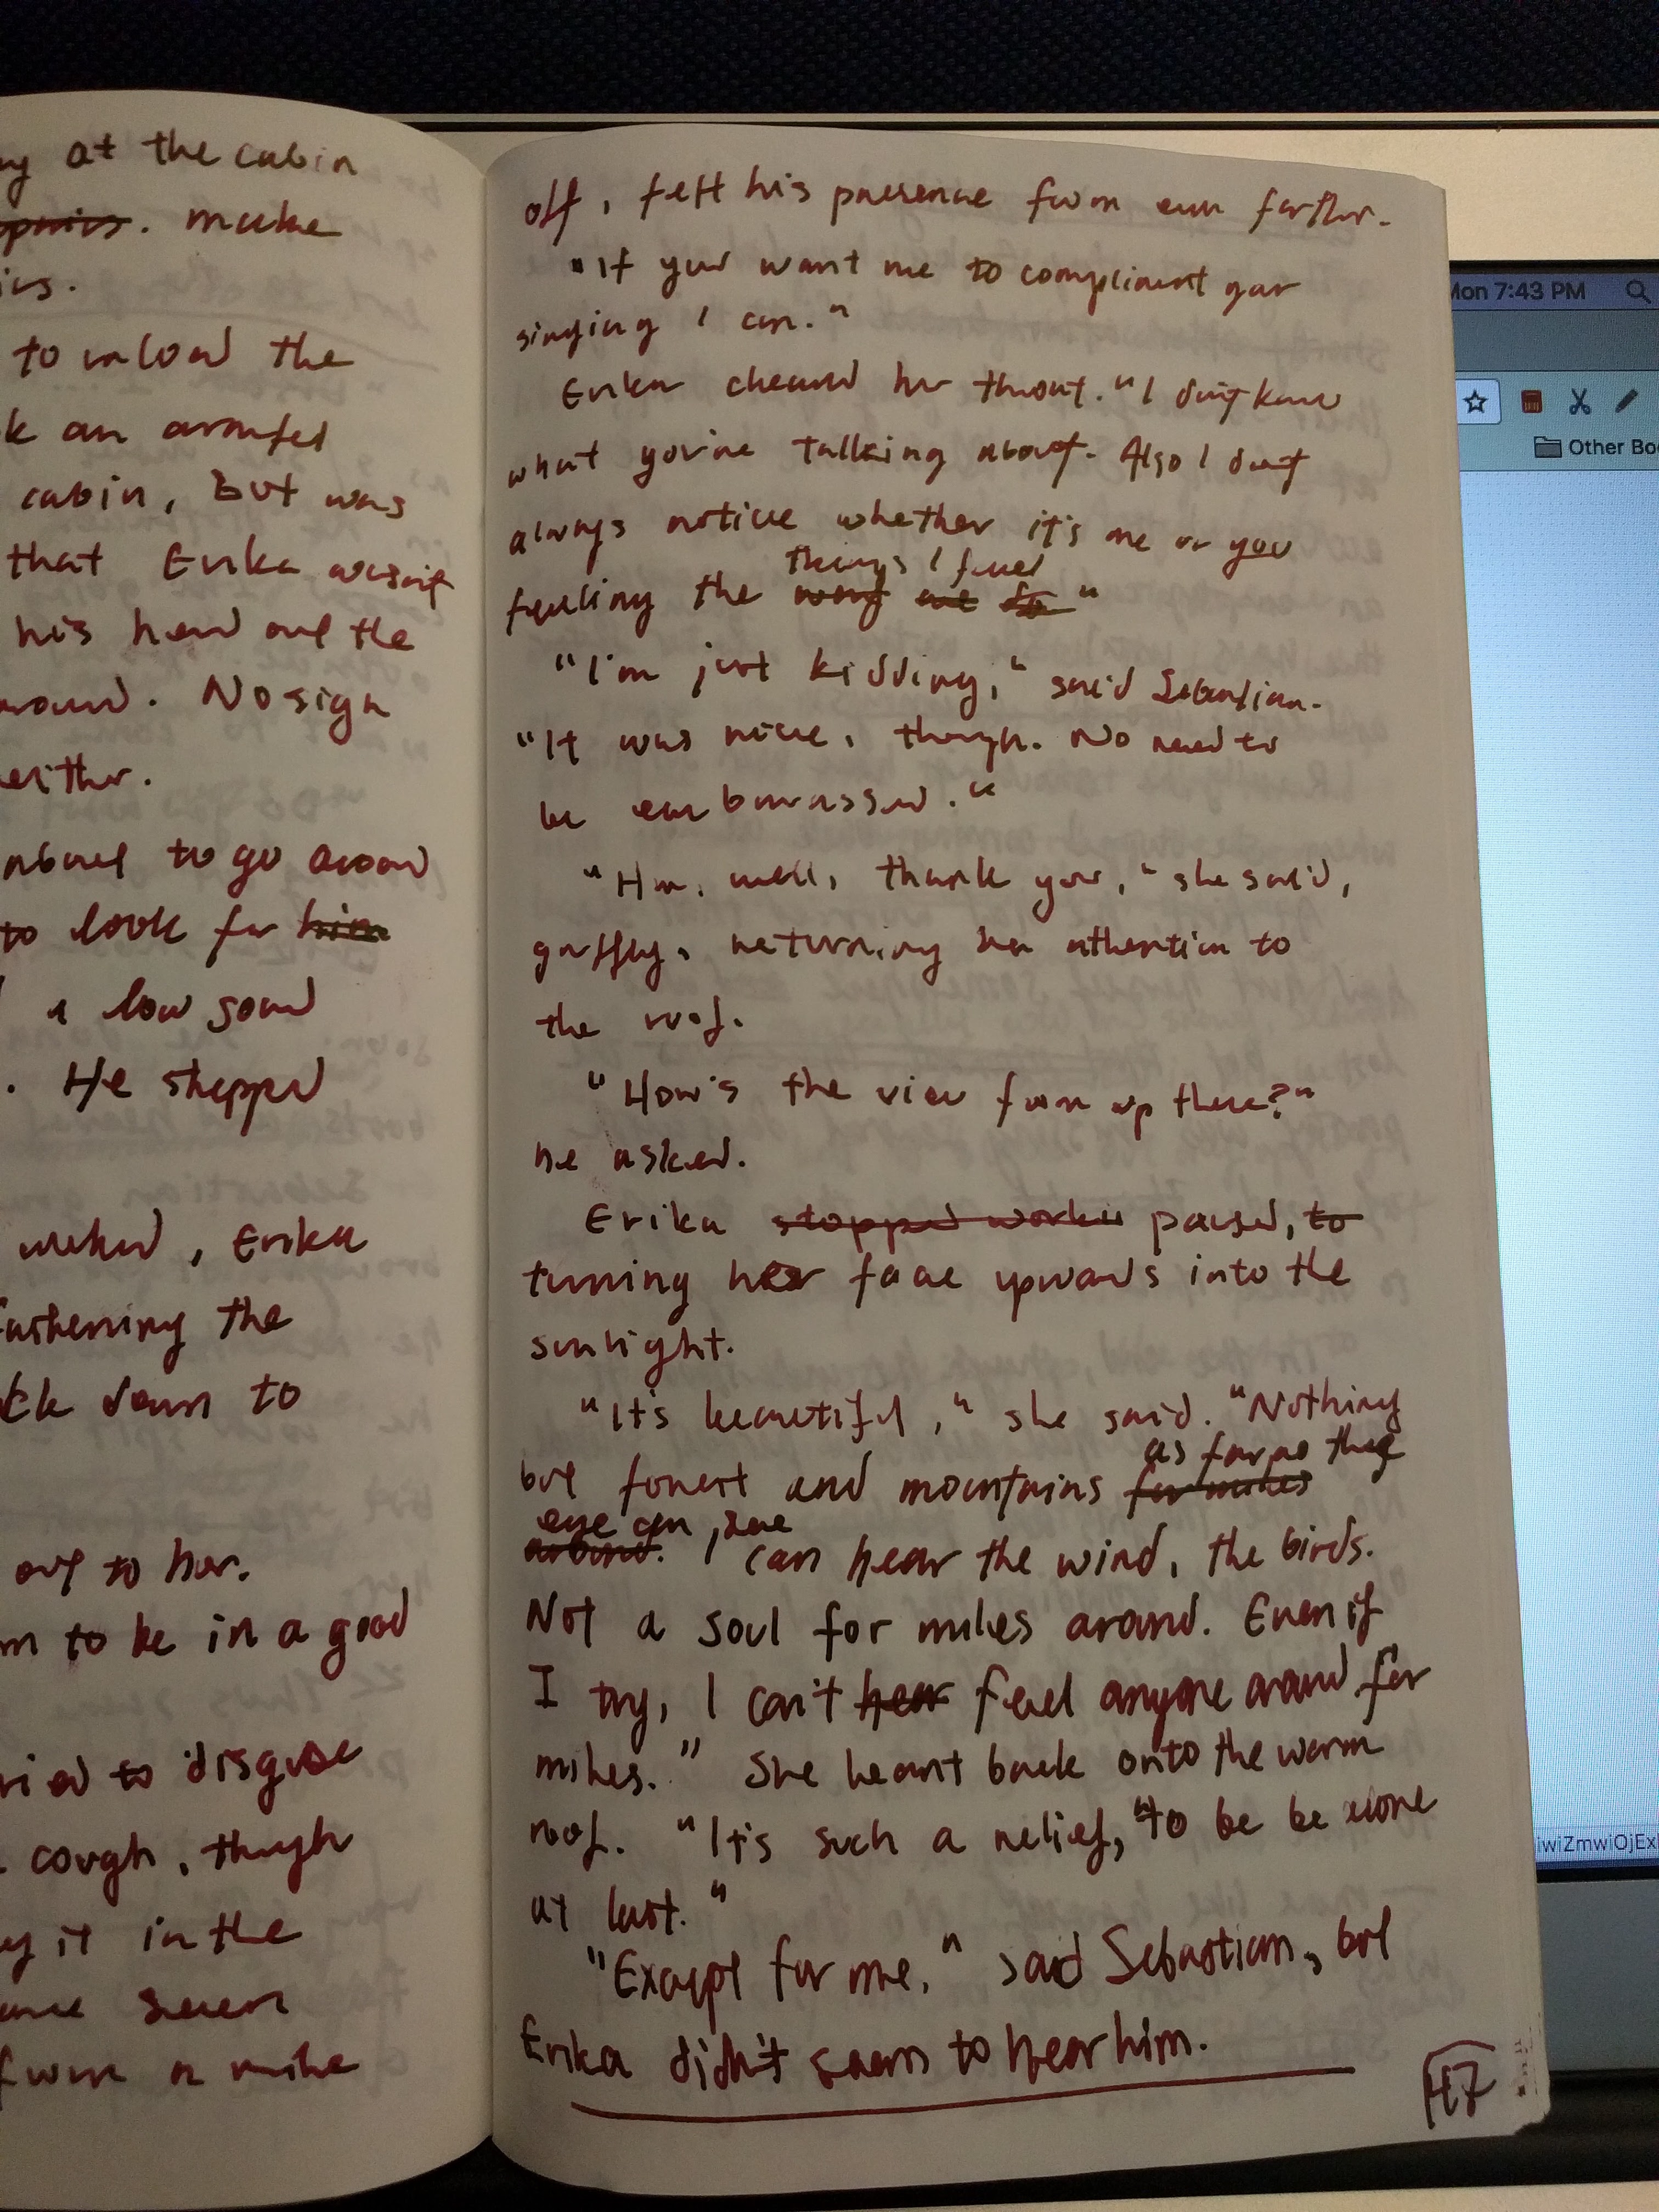 at the cabin
make
to unload the
an armful
cabin, but was
that Erika wasn't
his head out the
around. No sign
either.
about to go around
to look for him
a low sound
. He stepped
, Erika
fastening the
down to
out to her.
to be in a good
tried to disguise
cough, though
it in the
seen
from a mile
off, felt his presence from even farther.
"If you want me to compliment your
singing I can."
Erika cleared her throat. "I don't know
what you're talking about. Also I don't
always notice whether it's me or you
things I feel
feeling the way we do"
"I'm just kidding," said Sebastian.
"It was nice, though. No need to
be embarassed."
"Hm, well, thank you," she said,
gruffly, returning her attention to
the roof.
"How's the view from up there?"
he asked.
Erika stopped workin paused, to
turning her face upwards into the
sunlight.
"It's beautiful," she said. "Nothing
as far as the
but forest and mountains for miles
eye can see
around. I can hear the wind, the birds.
Not a soul for miles around. Even if
I try, I can't hear feel anyone around for
miles." She leant back onto the warm
roof. "It's such a relief, to be be alone
at last."
"Except for me," said Sebastian, but
Erika didn't seem to hear him.
47
Mon 7:43 PM
Other Bo
iwiZmwiOjEx